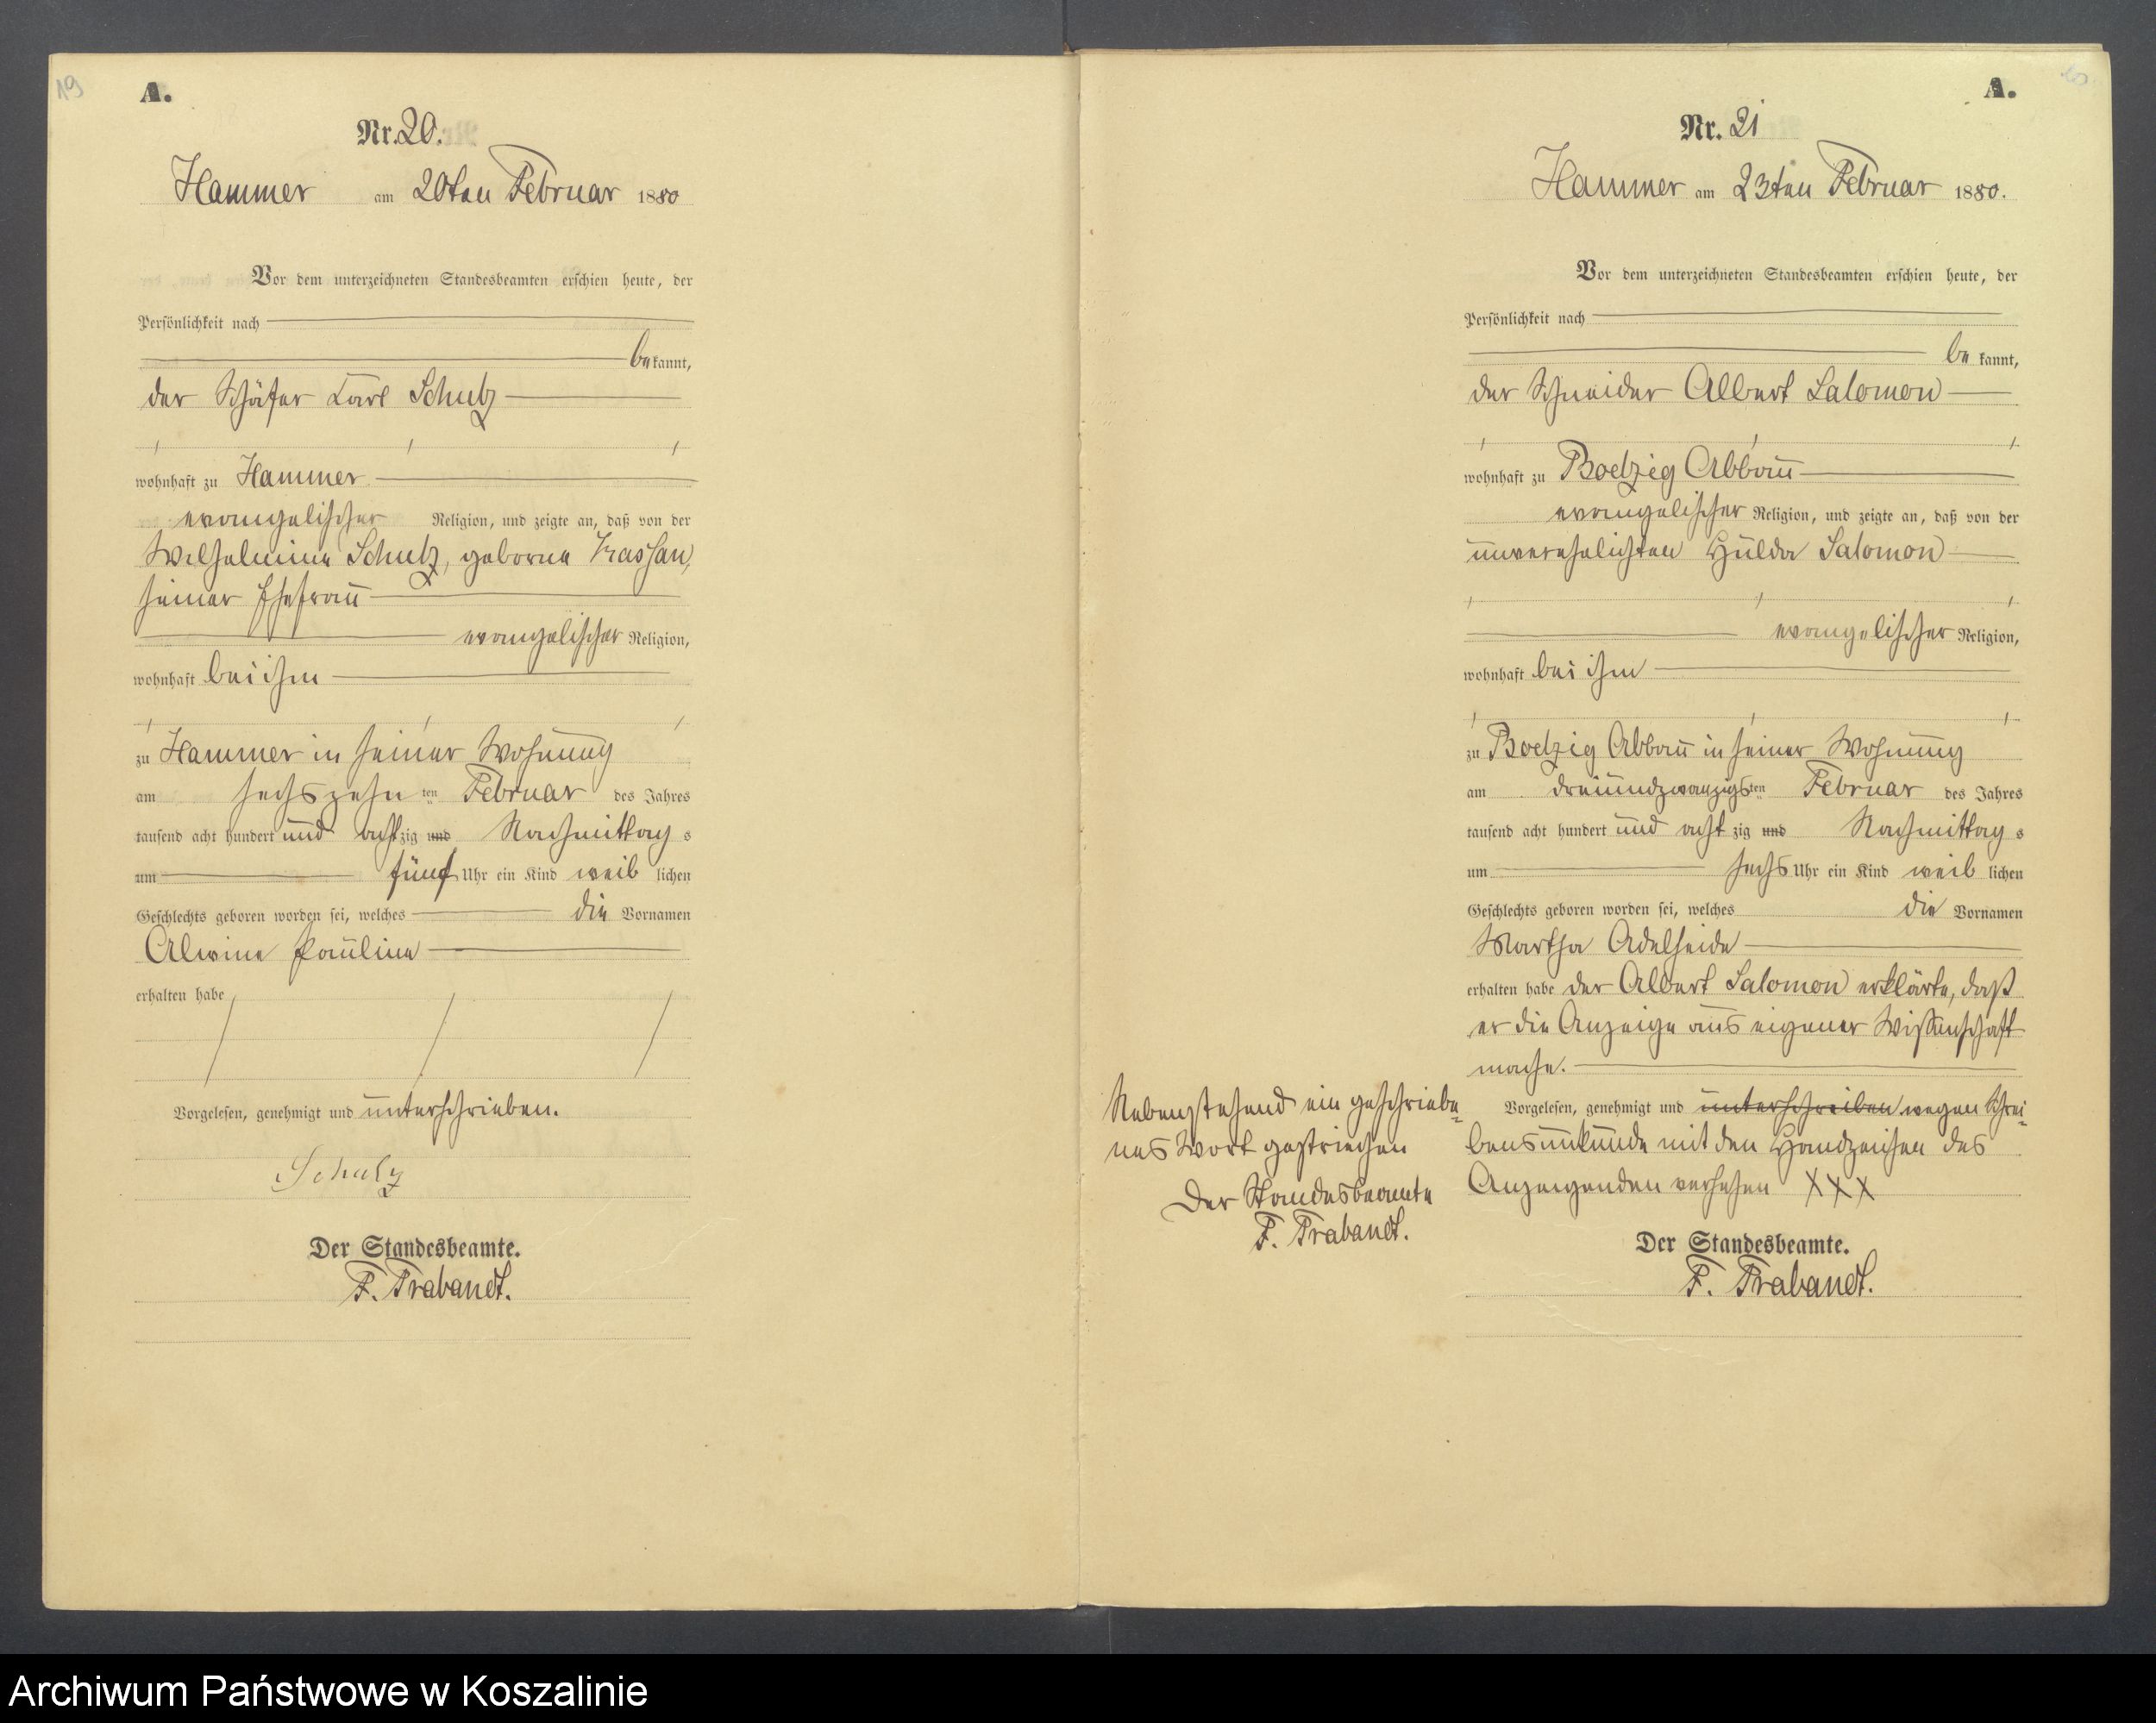 19
A.
Nr. 20.
Hammer am 20ten Februar 1880
Vor dem unterzeichneten Standesbeamten erschien heute, der
Persönlichkeit nach
bekannt,
der Schäfer Carl Schulz
wohnhaft zu Hammer
evangelischer Religion, und zeigte an, daß von der
Wilhelmine Schulz, geborne
seiner Ehefrau
evangelischer Religion,
wohnhaft bei ihm
zu Hammer in seiner Wohnung
am sechszehnten Februar des Jahres
tausend acht hundert und achtzig und Nachmittags
um fünf Uhr ein Kind weiblichen
Geschlechts geboren worden sei, welches die Vornamen
Alwine Pauline
erhalten habe
Vorgelesen, genehmigt und unterschrieben.
Schulz
Der Standesbeamte.
F. Trabandt.
A.
Nr. 21
Hammer am 23ten Februar 1880.
Vor dem unterzeichneten Standesbeamten erschien heute, der
Persönlichkeit nach
bekannt,
der Schneider Albert Salomon
wohnhaft zu Boetzig Abbau
evangelischer Religion, und zeigte an, daß von der
unverehelichten Hulda Salomon
evangelischer Religion,
wohnhaft bei ihm
zu Boetzig Abbau in seiner Wohnung
am dreiundzwanzigsten Februar des Jahres
tausend acht hundert und achtzig und Nachmittags
um sechs Uhr ein Kind weiblichen
Geschlechts geboren worden sei, welches die Vornamen
Martha Adelheide
erhalten habe der Albert Salomon erklärte, daß
er die Anzeige aus eigener Wissenschaft
mache.
Vorgelesen, genehmigt und unterschreiben wegen Schrei-
bensunkunde mit den Handzeichen des
Anzeigenden versehen XXX
Der Standesbeamte.
F. Trabandt.
Nebenstehend ein geschriebe-
nes Wort gestrichen
Der Standesbeamte
F. Trabandt.
Archiwum Państwowe w Koszalinie